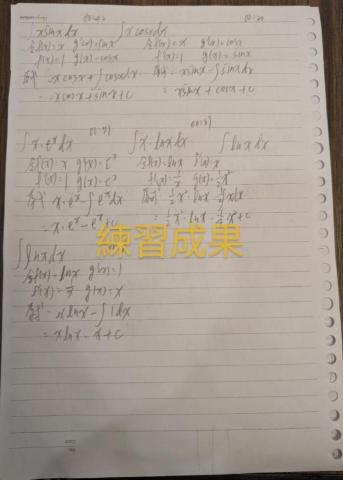 ∫xsinxdx
∫xcosxdx
令f(x)=x g'(x)=sinx
令f(x)=x g'(x)=cosx
f'(x)=1 g(x)=-cosx
f'(x)=1 g(x)=sinx
原式=-xcosx+∫cosxdx
原式=xsinx-∫sinxdx
=-xcosx+sinx+c
=xsinx+cosx+c
∫x·eˣdx
∫x·lnxdx
∫lnxdx
令f(x)=x g'(x)=eˣ
令f(x)=lnx g'(x)=x
f'(x)=1 g(x)=eˣ
f'(x)=1/x g(x)=½x²
原式=x·eˣ-∫eˣdx
=x·eˣ-eˣ+c
練習成果
∫lnxdx
令f(x)=lnx g'(x)=1
g(x)=x
原式=xlnx-∫1dx
=xlnx-x+c